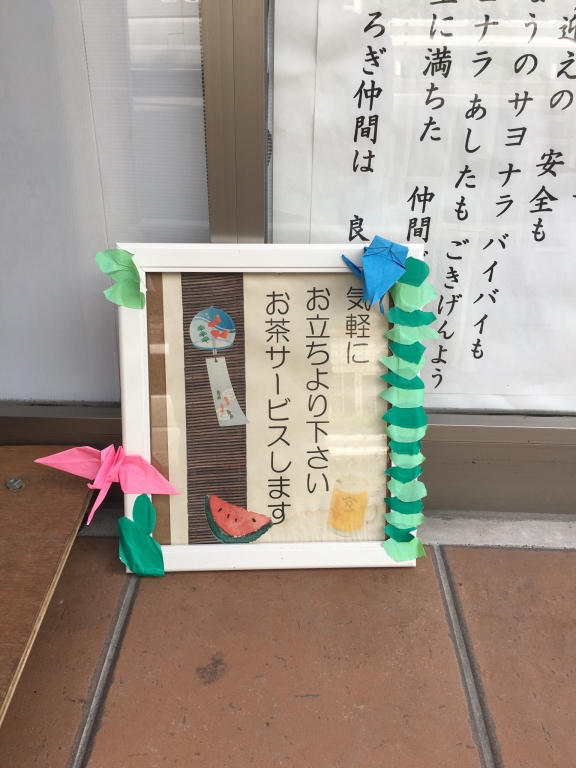 気軽に
お立ちより下さい
お茶サービスします
近えの 安全も
ようのサヨナラ バイバイも
ナラ あしたも ごきげんよう
に満ちた 仲間
ろぎ仲間は 良